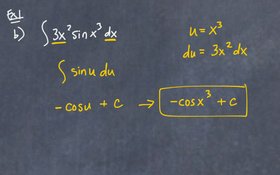 Ex1
b) ∫ 3x² sin x³ dx
u = x³
du = 3x² dx
∫ sin u du
-cos u + c → -cos x³ + c